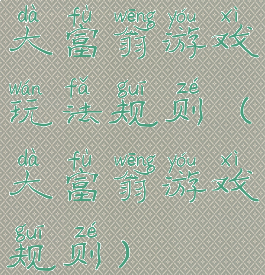 dà fù wēng yóu xì
大富翁游戏
wán fǎ guī zé
玩法规则（
dà fù wēng yóu xì
大富翁游戏
guī zé
规则）